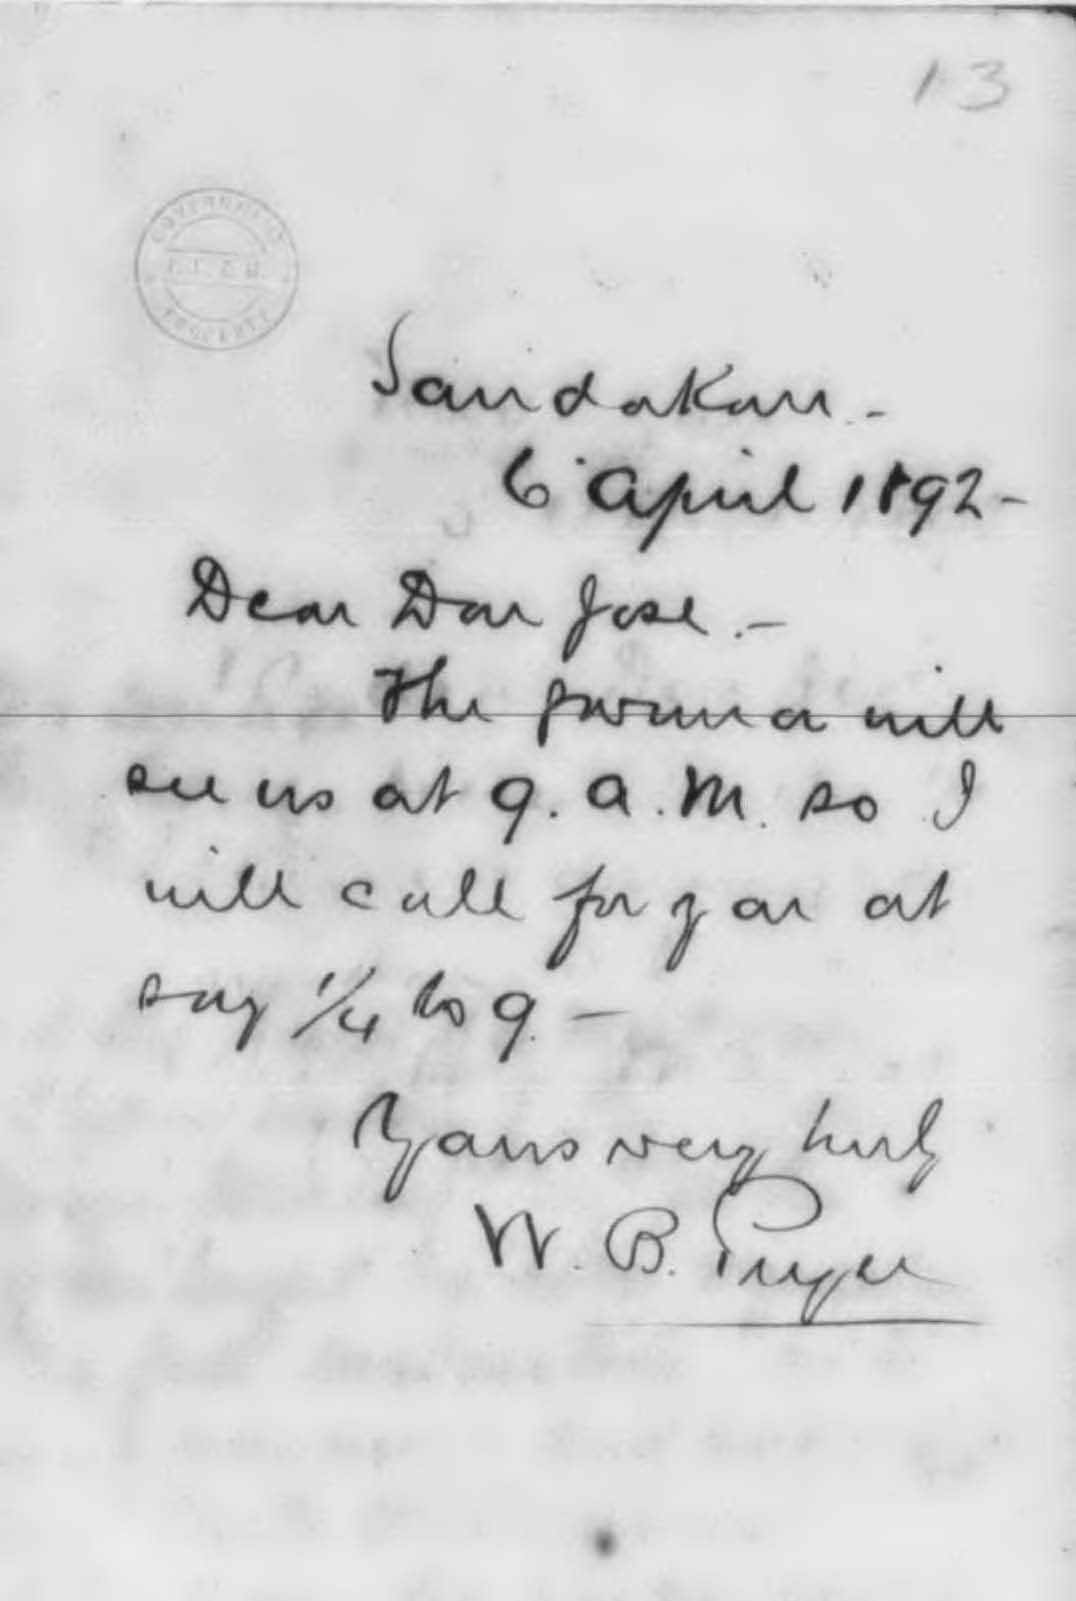 13
GOVERNMENT
PROPERTY
Sandakan -
6 April 1892 -
Dear Don Jose. -
The governor will
see us at 9. a. m. so I
will call for you at
say 1/4 to 9. -
Yours very truly
W. B. Pryer